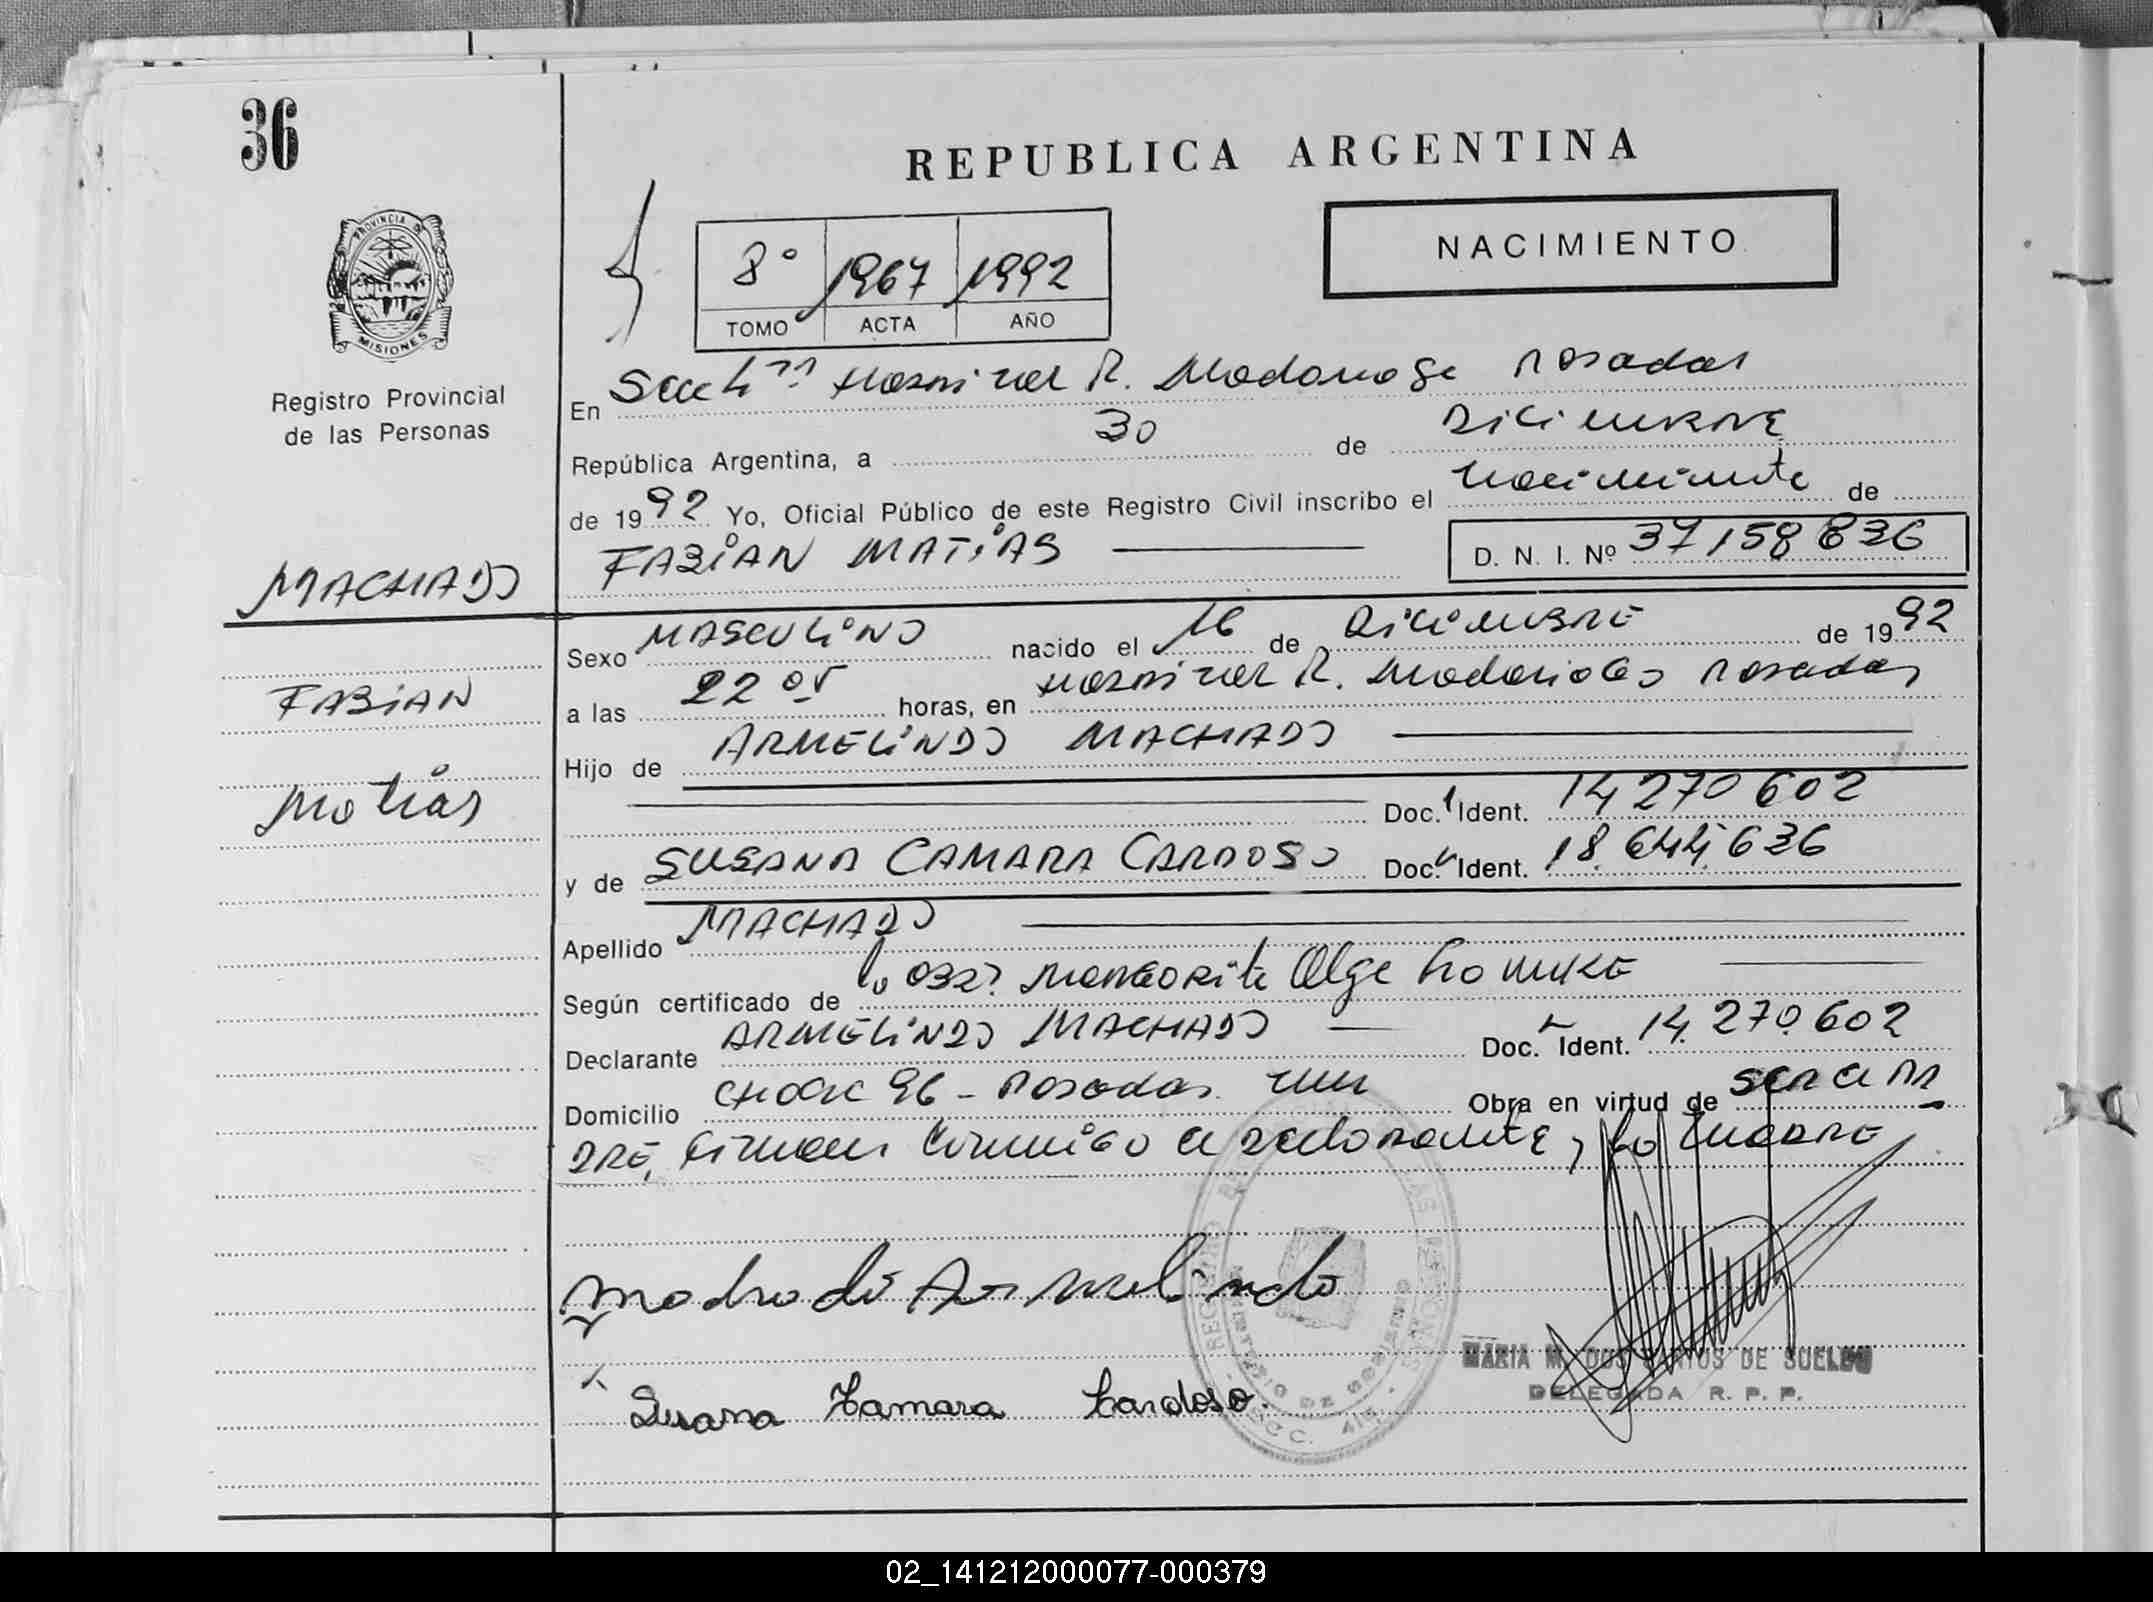 36
REPUBLICA ARGENTINA
PROVINCIA DE
MISIONES
Registro Provincial
de las Personas
8° 1967 1992
TOMO ACTA AÑO
NACIMIENTO
En Hospital R. Madariaga Posadas
República Argentina, a 30 de Diciembre
de 1992 Yo, Oficial Público de este Registro Civil inscribo el nacimiento de
FABIAN MATIAS D. N. I. Nº 37,158,836
MACHADO
FABIAN
Matías
Sexo MASCULINO nacido el 16 de Diciembre de 1992
a las 22 05 horas, en Hospital R. Madariaga Posadas
Hijo de ARMELINDO MACHADO
Doc. Ident. 14 270 602
y de SUSANA CAMARA CARDOSO Doc. Ident. 18.644.636
Apellido MACHADO
Según certificado de Olga
Declarante ARMELINDO MACHADO Doc. Ident. 14.270.602
Domicilio 96 - Posadas Obra en virtud de ser el pa
dre, firman conmigo el declarante y la madre
Armelindo
Susana Camara Cardoso.
MARIA M. DOS SANTOS DE SUELDO
DELEGADA R. P. P.
MINISTERIO DE GOBIERNO
02_141212000077-000379